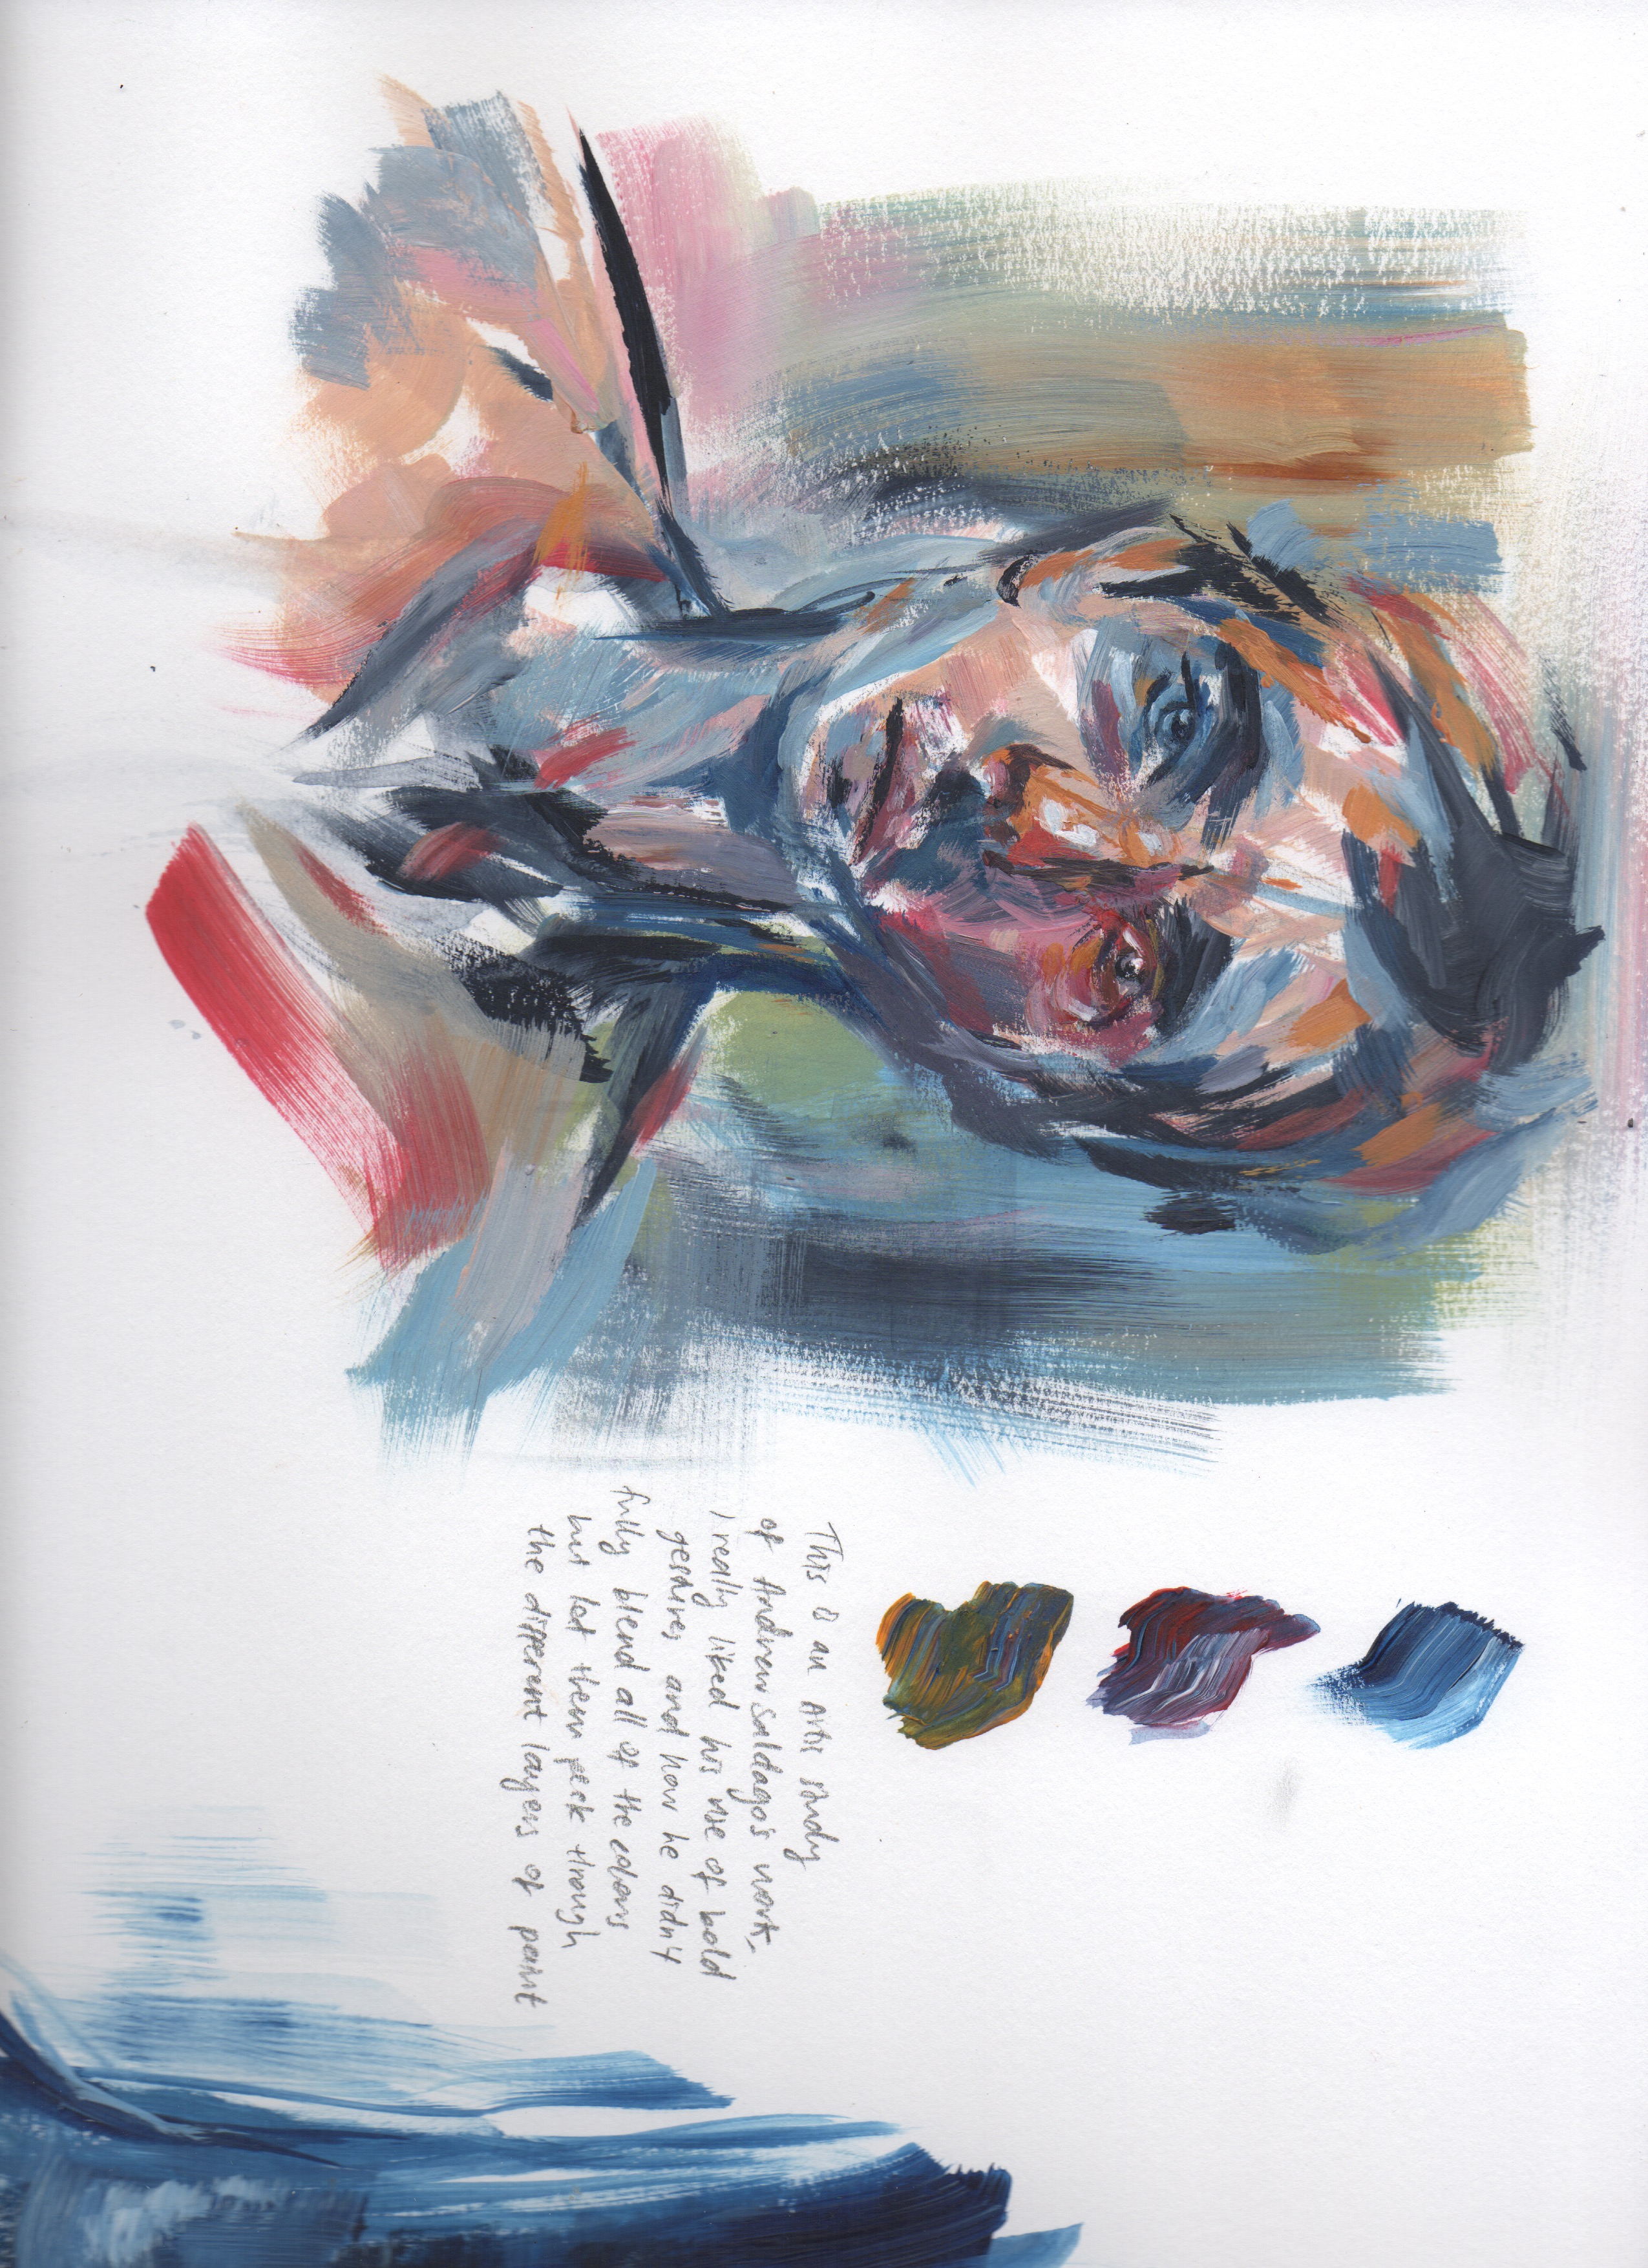 This is an Artist study
of Andrew Saldago's work,
I really liked his use of bold
gestures and how he didn't
fully blend all of the colors
but let them peek through
the different layers of paint